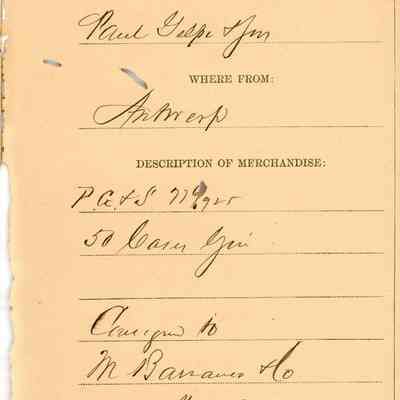 Paul Gelpi & Son
WHERE FROM:
Antwerp
DESCRIPTION OF MERCHANDISE:
P. G. & S
50 Cases Gin
Consigned to
M Barranco & Co